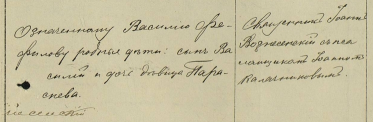 Означенному Василию Фе-
филову родные дети: сынъ Ва
силий и дочь девица Пара-
скева.
Священникъ Иоаннъ
Вознесенский съ пса
ломщикомъ Иоанномъ
Калачниковымъ.